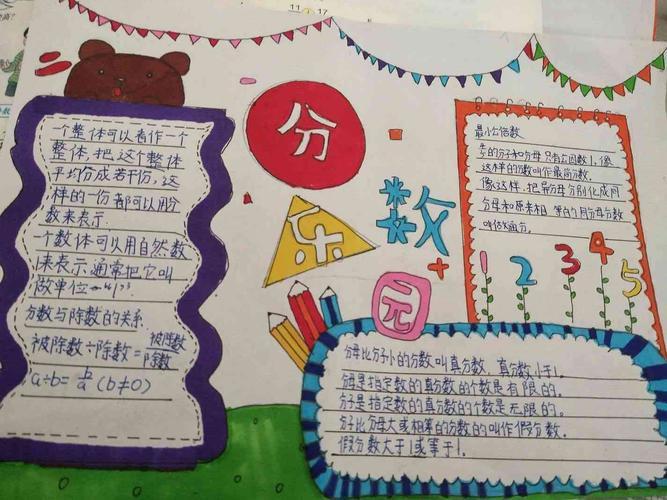 11 17
分
数
乐
园
一个整体可以看作一个
整体,把这个整体
平均份成若干份,这
样的一份都可以用分
数来表示.
一个数体可以用自然数
1来表示,通常把它叫
做单位
分数与除数的关系
被除数÷除数=被除数/除数
a÷b= (b≠0)
最小公倍数
的分子和分母只有公因数1,像
这样的分数叫作最简分数.
像这样,把异分母分别化成同
分母和原来相 等的 分母分数
叫做通分.
1 2 3 4 5
分母比分子小的分数叫真分数,真分数小于1.
分母是指定数的真分数的个数是有限的.
分子是指定数的真分数的个数是无限的.
分子比分母大或相等的分数的叫作假分数.
假分数大于1或等于1.